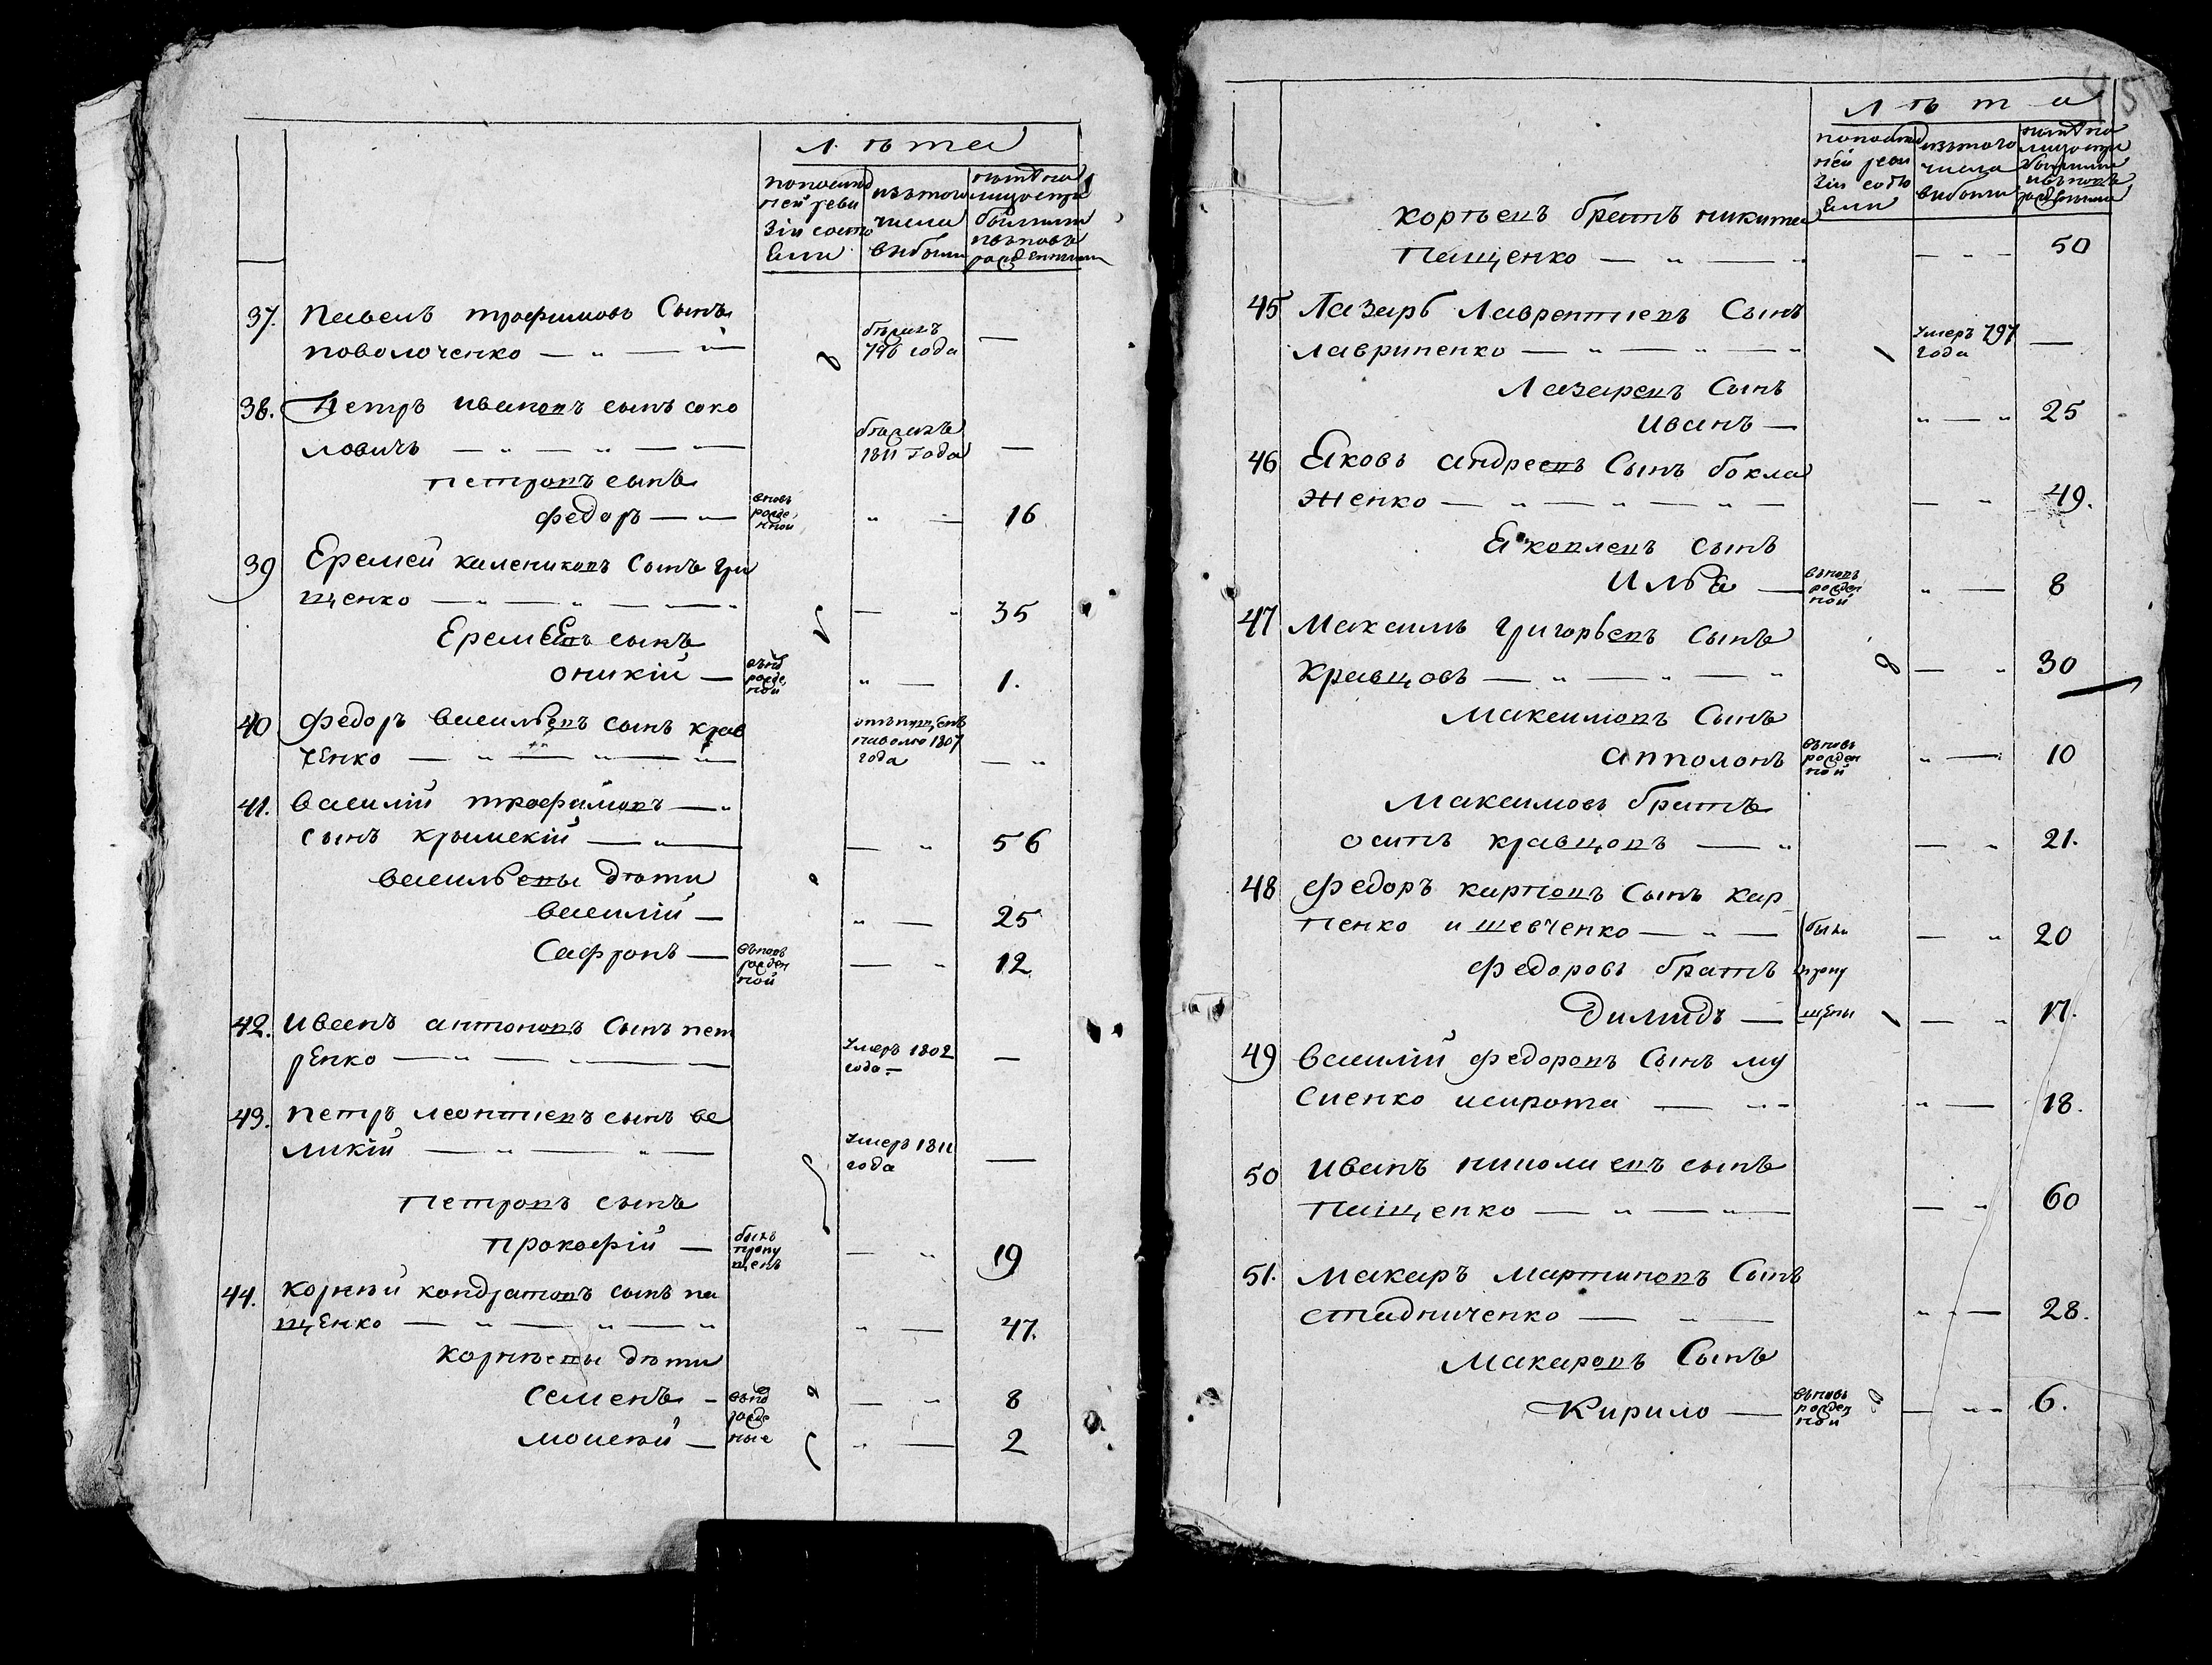 Лѣта
попослѣд
ней реви
зіи состо
яли
изътого
числа
выбыли
ныѣ на
лицо стри
былыми
ивновь
рожденными
37. Павелъ трофимовъ Сынъ
поволоченко — „ — „
бѣжалъ
796 года —
38. Петръ ивановъ сынъ соко
ловичь — „ — „ —
бѣжалъ
1811 года —
петровъ сынъ
федоръ — „ вновь
рожде
нной „ — 16
39 Еремей калениковъ Сынъ гри
щенко — „ — „ — — „ — „ 35
Еремѣевъ сынъ
оникій — вьно
рожде
ной „ — 1.
40 федоръ васильевъ сынъ крав
ченко — „ — „ — „
отпущенъ
наволю 1807
года — „
41. василій трофимовъ — „
сынъ крымскій — „ — — „ 56
васильевы дѣти
василій — „ — 25
Сафронъ — вьновь
рожден
ной — „ 12
42. иванъ антоновъ Сынъ пет
ренко — „ — „ — —
Умеръ 1802
года — —
43. петръ леонтиевъ сынъ ве
ликій — „ — „ —
Умеръ 1811
года —
петровъ сынъ
прокофій — былъ
пропу
щенъ — „ 19
44. корнѣй кондратовъ сынъ па
щенко — „ — „ — „ „ — 47.
корнѣевы дѣти
семенъ — вьно
рожде
ные — „ 8
мои­сѣй — „ — 2
45
Лѣта
попослѣд
ней реви
зіи состо
яли
изътого
числа
выбыли
ныѣ на
лицо стри
былыми
ивновь
рожденными
корнѣевъ братъ никита
Пащенко — „ — „ — „ — 50
45 Лазарь Лаврентиевъ Сынъ
лавриненко — „ — „ — „
Умеръ 797
года —
Лазаревъ Сынъ
иванъ — „ — „ 25
46 Яковъ андреевъ Сынъ бокла
женко — „ — „ — „ — — „ 49.
Яковлевъ сынъ
илья — вьновь
рожден
ной „ — 8
47 Максимъ григорьевъ сынъ
Кравцовъ — „ — „ — „ — „ 30
максимовъ Сынъ
апполонъ вьновь
рожден
ной „ — 10
Максимовъ братъ
осипъ кравцовъ — „ — „ 21.
48 федоръ карповъ Сынъ кар
пенко и шевченко — „ — были — „ 20
федоровъ братъ пропу
Димидъ — щены — „ 17.
49 василій федоровъ Сынъ му
сиенко исирота — „ „ — 18.
50 иванъ николаевъ сынъ
Пащенко — „ — „ — „ 60
51. макаръ мартиновъ Сынъ
стадниченко — „ — „ „ — 28.
макаровъ Сынъ
Кирило — вьновь
рожден
ной — „ 6.